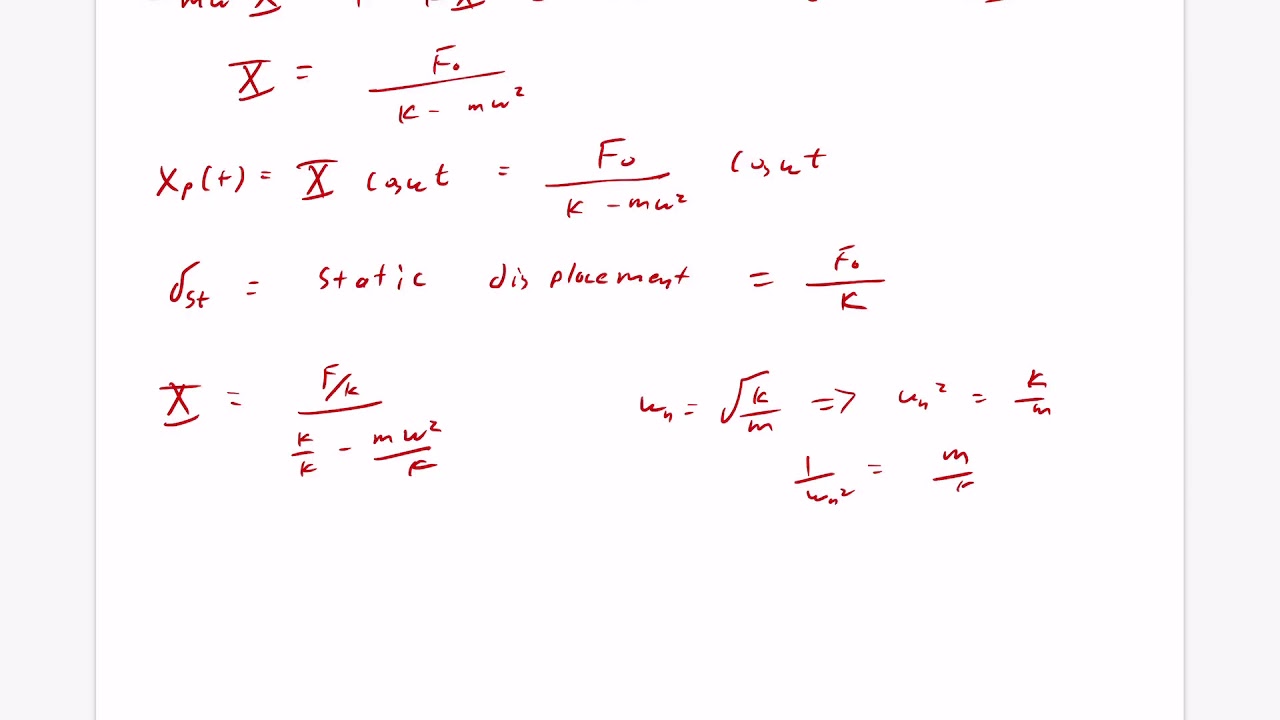 X = F₀ / (k - mω²)
xₚ(t) = X cos ωt = F₀ / (k - mω²) cos ωt
δst = static displacement = F₀ / k
X = (F/k) / (k/k - mω²/k)    ωₙ = √(k/m) => ωₙ² = k/m
1/ωₙ² = m/k